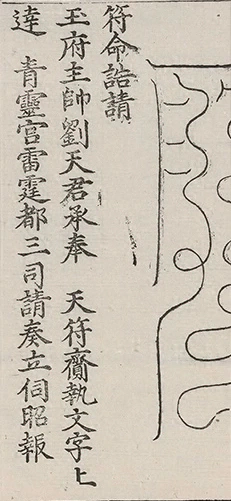 符命誥請
玉府主帥劉天君承奉 天符齎執文字上
達 青靈宫雷霆都三司請奏立伺昭報